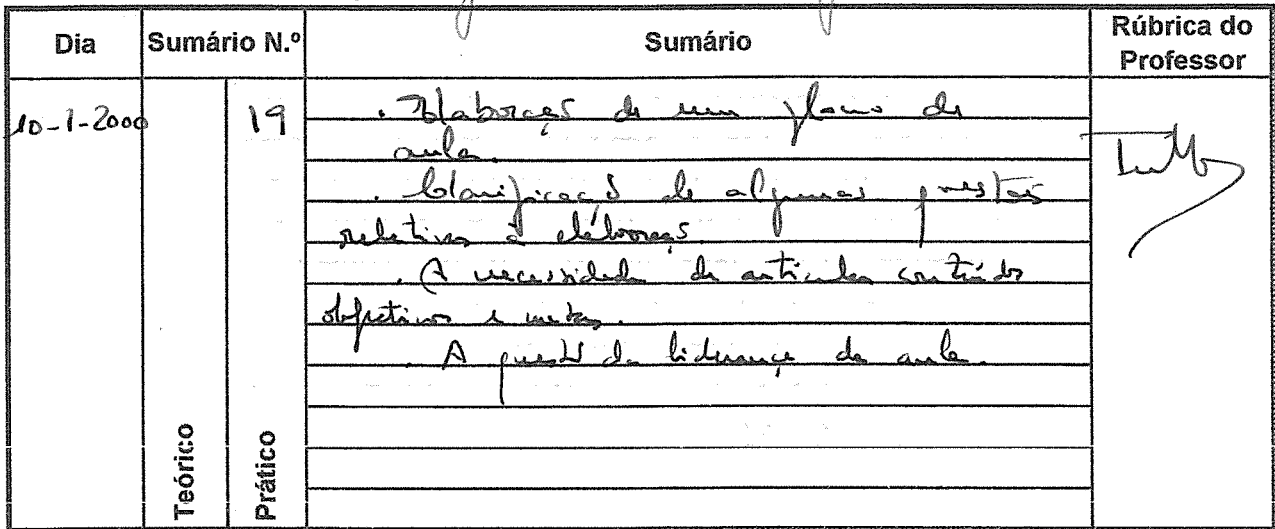 Dia Sumário N.º Sumário Rúbrica do Professor
10-1-2000 19 . Elaboração de um plano de
aula.
. Clarificação de algumas questões
relativas à elaboração.
. A necessidade de articular conteúdos
objetivos e metas.
. A questão da liderança da aula.
Teórico Prático